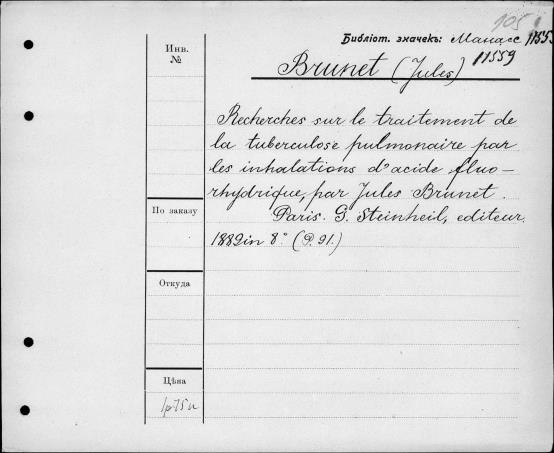 105
Библіот. значекъ: Манасс 11559
11559
Инв.
№
Brunet (Jules)
Recherches sur le traitement de
la tuberculose pulmonaire par
les inhalations d'acide fluo-
rhydrique, par Jules Brunet.
Paris. G. Steinheil, editeur.
1889 in 8° (P. 91.)
По заказу
Откуда
Цѣна
1р75к